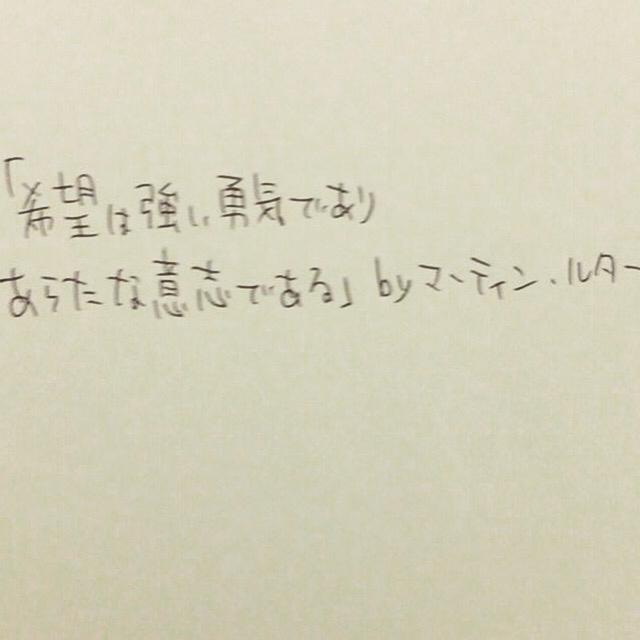 「希望は強い勇気であり
あらたな意志である」 by マーティン・ルター